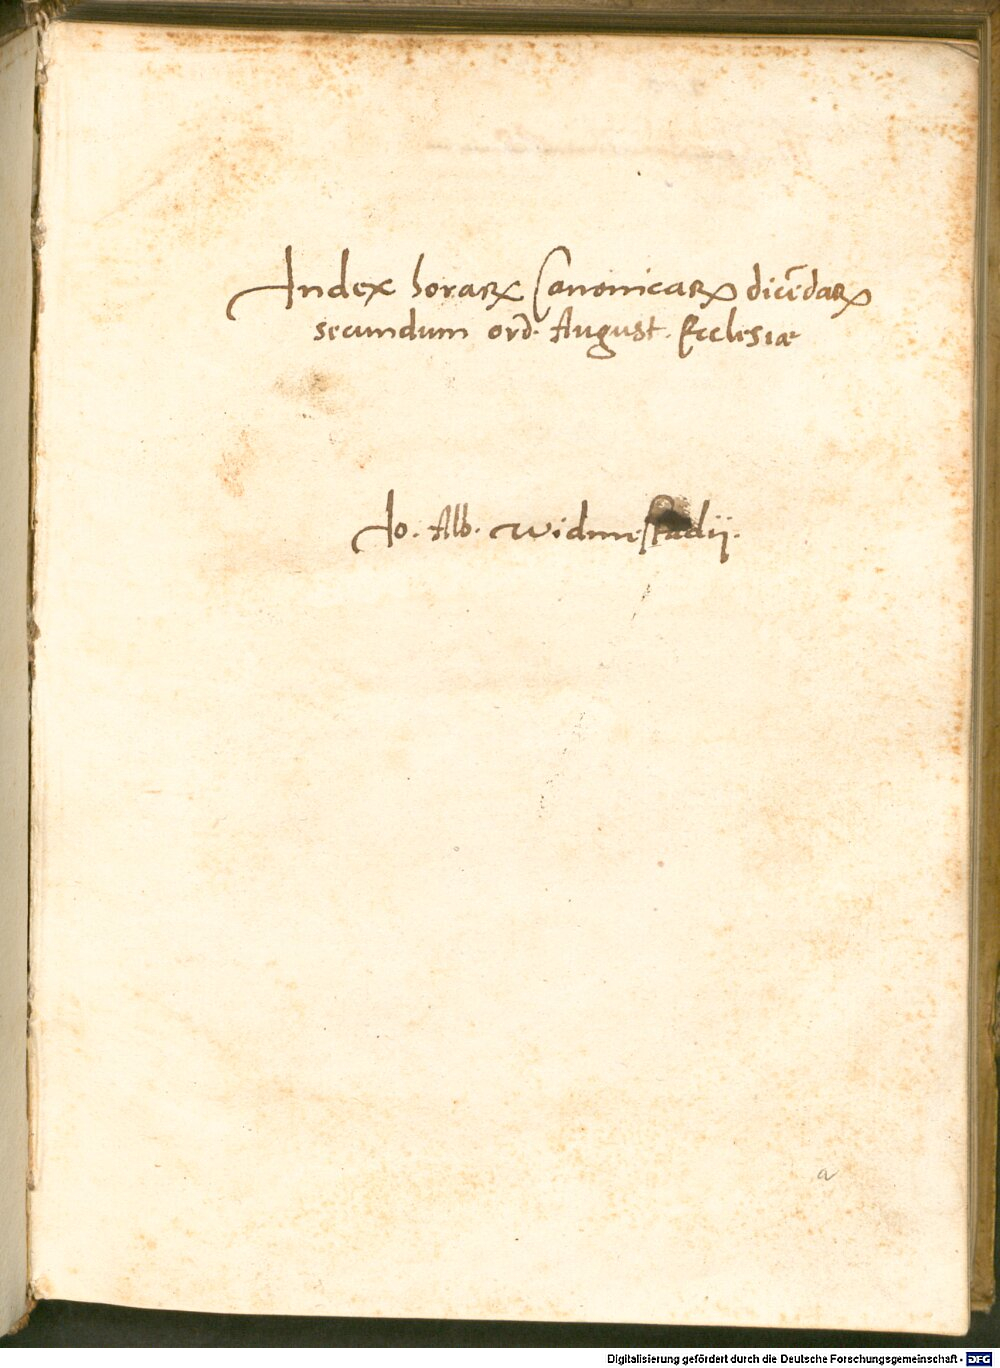 Index horaꝝ Canonicaꝝ dicēdaꝝ
secundum ord. August. Ecclesiæ
Io. Alb. Widmestadij.
a
Digitalisierung gefördert durch die Deutsche Forschungsgemeinschaft - DFG